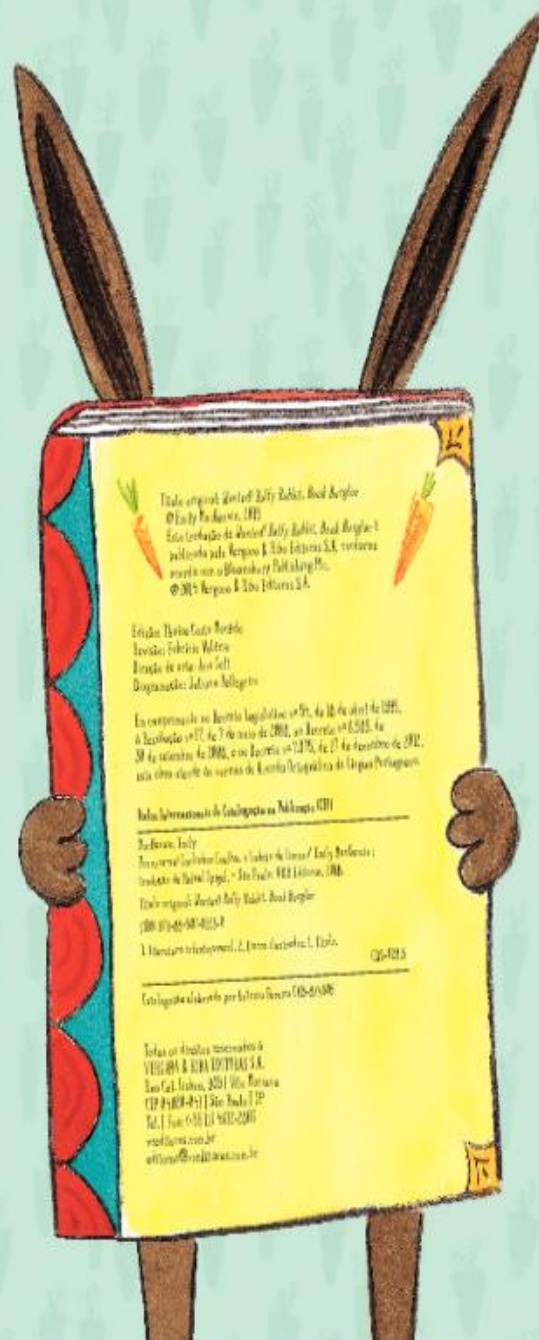 Título original: Wanted! Ralfy Rabbit, Book Burglar
© Emily MacKenzie, 2015
Esta tradução de Wanted! Ralfy Rabbit, Book Burglar é
publicada pela Vergara & Riba Editoras S.A. conforme
acordo com a Bloomsbury Publishing Plc.
© 2015 Vergara & Riba Editoras S.A.
Edição: Thaíse Costa Macêdo
Revisão: Fabrício Valério
Direção de arte: Ana Solt
Diagramação: Juliana Pellegrini
Em cumprimento ao Decreto Legislativo nº 54, de 18 de abril de 1995,
à Resolução nº 17, de 7 de maio de 2008, ao Decreto nº 6.583, de
29 de setembro de 2008, e ao Decreto nº 7.875, de 27 de dezembro de 2012,
esta obra atende às normas do Acordo Ortográfico da Língua Portuguesa.
Dados Internacionais de Catalogação na Publicação (CIP)
MacKenzie, Emily
Coelho, o ladrão de livros / Emily MacKenzie ;
tradução de Rafael Spigel. - São Paulo: V&R Editoras,
Título original: Wanted! Ralfy Rabbit, Book Burglar
ISBN
1. Literatura infantojuvenil. 2. Livros ilustrados. I. Título.
Catalogação elaborada por Antonia Pereira
Todos os direitos reservados à
VERGARA & RIBA EDITORAS S.A.
Rua Cel. Lisboa, | Vila Mariana
CEP 04020-041 | São Paulo | SP
Tel. | Fax:
vreditoras.com.br
editoras@vreditoras.com.br